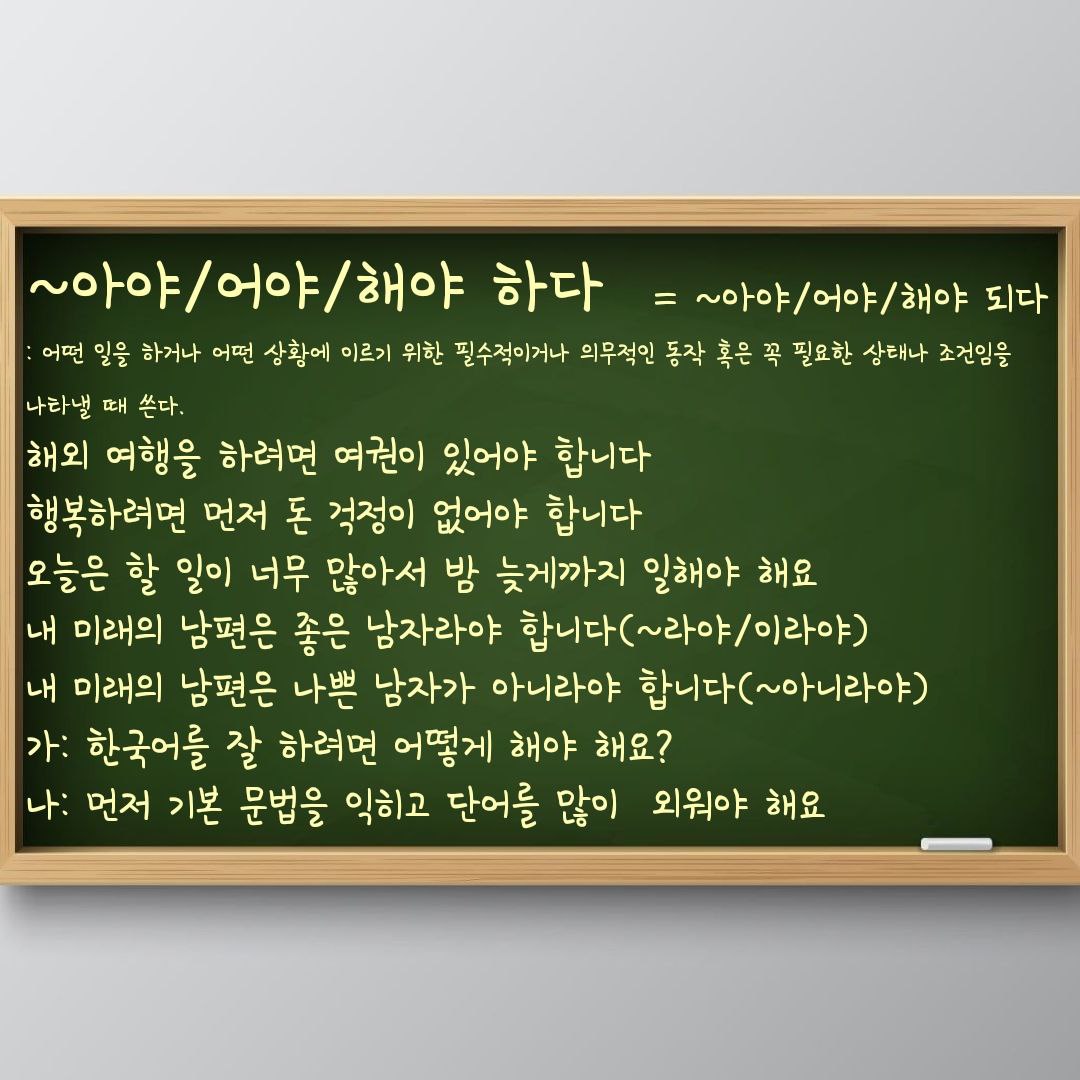 ~아야/어야/해야 하다 = ~아야/어야/해야 되다
: 어떤 일을 하거나 어떤 상황에 이르기 위한 필수적이거나 의무적인 동작 혹은 꼭 필요한 상태나 조건임을
나타낼 때 쓴다.
해외 여행을 하려면 여권이 있어야 합니다
행복하려면 먼저 돈 걱정이 없어야 합니다
오늘은 할 일이 너무 많아서 밤 늦게까지 일해야 해요
내 미래의 남편은 좋은 남자라야 합니다(~라야/이라야)
내 미래의 남편은 나쁜 남자가 아니라야 합니다(~아니라야)
가: 한국어를 잘 하려면 어떻게 해야 해요?
나: 먼저 기본 문법을 익히고 단어를 많이 외워야 해요